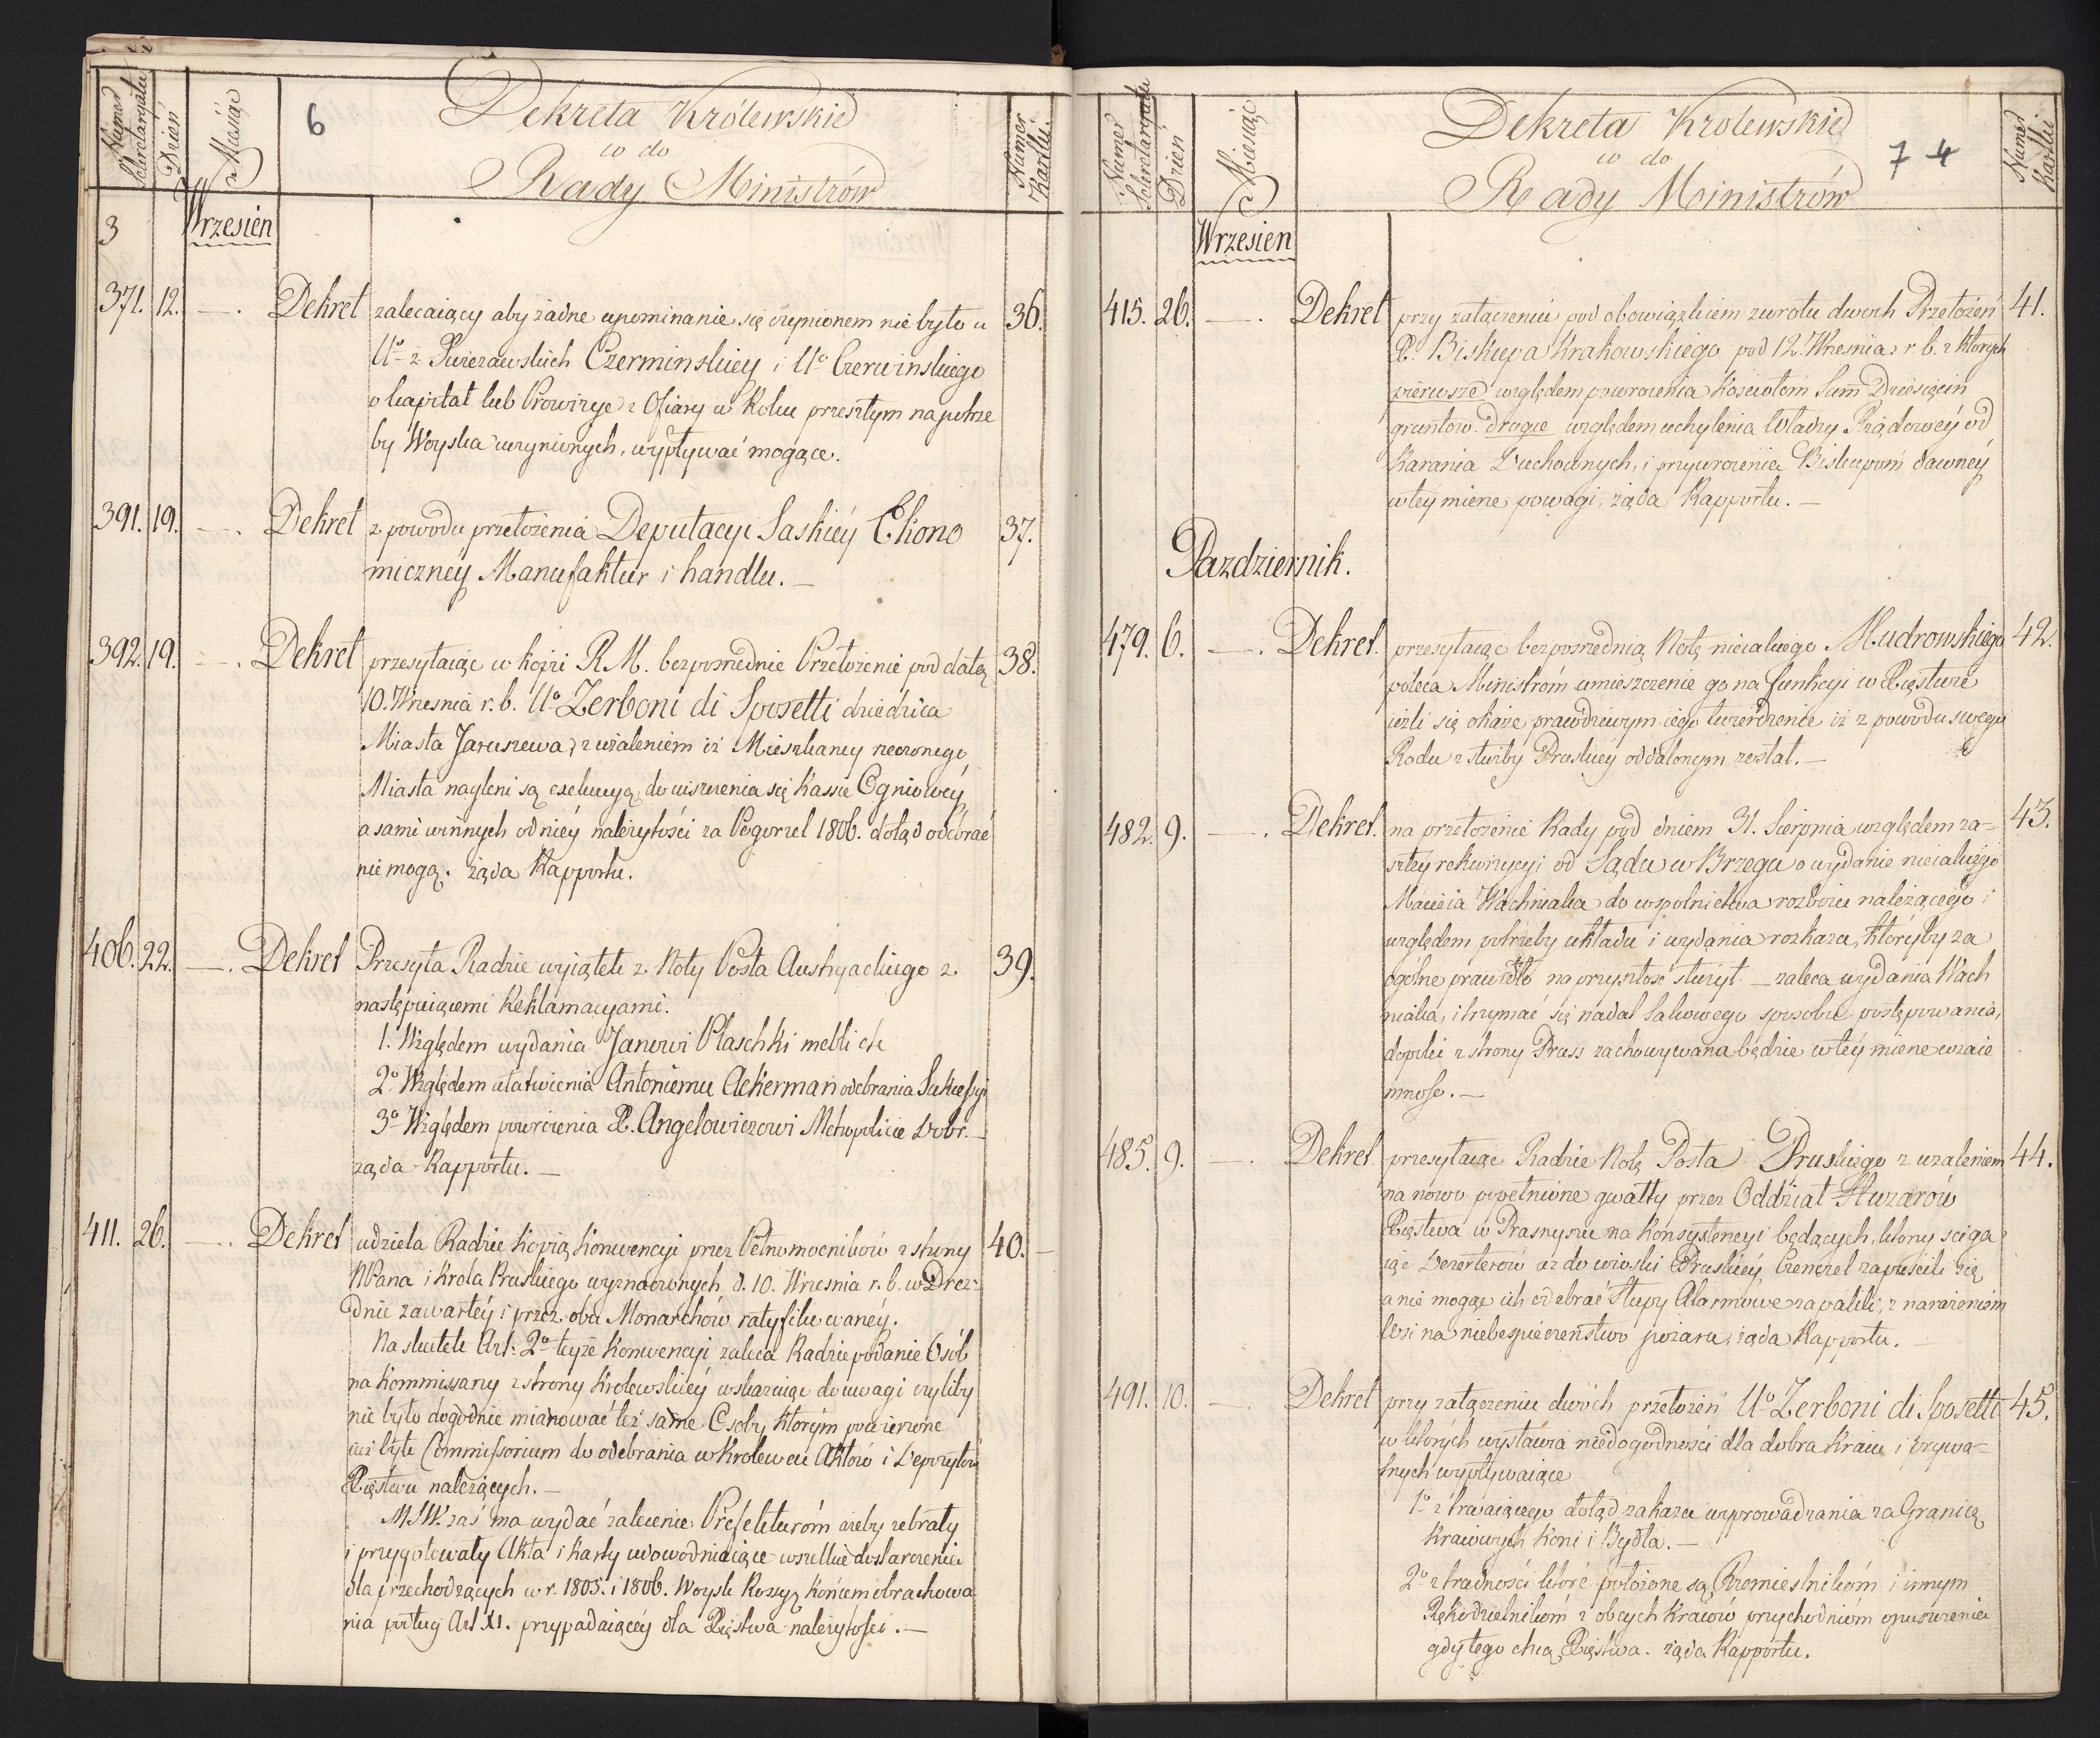 Numer Sekretaryatu
Dzień
Miesiąc
6
Dekreta Królewskie
w do
Rady Ministrów
Numer Kartki.
3
Wrzesień
371. 12. —. Dekret zalecaiący aby żadne upominanie się czynionem nie było u 36.
Uº z Swierzawskich Czerminskiey i Uº Czerwinskiego
o kapitał lub Prowizye z Ofiary w Roku przeszłym na potrze
by Woyska uczynionych, wypływać mogące.
391. 19. —. Dekret z powodu przełożenia Deputacyi Saskiéy Ekono 37.
miczney Manufaktur i handlu. —
392. 19. —. Dekret przesyłaiąc w kopii R.M. bezpośrednie Przełożenie pod datą 38.
10. Wrzesnia r.b. Uº Zerboni di Sposetti dziedzica
Miasta Jaruszewa, z użaleniem iż Mieszkancy rzeczonego
Miasta nagleni są exekucyą do uiszczenia się Kassie Ogniowéy
a sami winnych od niéy należytości za Pogorzel 1806. dotąd odebrać
nie mogą. żąda Rapportu.
406. 22. —. Dekret Przesyła Radzie wyiątek z Noty Posła Austryackiego z 39.
następuiącemi Reklamacyami.
1. Względem wydania Janowi Plaschki mebli etc
2º Względem ułatwienia Antoniemu Ackerman odebrania Sukcessyi
3º Względem powrócenia X. Angelowiczowi Metropolicie Dobr. —
żąda Rapportu. —
411. 26. —. Dekret udziela Radzie Kopią Konwencyi przez Pełnomocników z strony 40. —
NPana i Krola Pruskiego wyznaczonych d. 10. Wrzesnia r.b. w Drez-
dnie zawartéy i przez obu Monarchów ratyfikowanéy.
Na skutek Art: 2º teyże Konwencyi zaleca Radzie podanie Osób
na Kommissarzy z strony Krolewskiéy wskazuiąc do uwagi czyliby
nie było dogodnie mianować też same Osoby którym powierzone
iuż było Commissorium do odebrania w Krolewcu Aktów i Depozytów
Xięstwu należących. —
MSW. zaś ma wydać zalecenie Prefekturóm ażeby zebrały
i przygotowały Akta i Karty udowodniaiące wszelkie dostarczenia
dla przechodzących w r. 1805. i 1806. Woysk Rossyi Końcem obrachowa
nia podług Art XI. przypadaiącéy dla Xięstwa należytości. —
Numer Sekretaryatu
Dzień
Miesiąc
Dekreta Krolewskie
w do
Rady Ministrów
7 4
Numer Kartki
Wrzesien
415. 26. —. Dekret przy załączeniu pod obowiązkiem zwrotu dwóch Przełożeń 41.
X. Biskupa Krakowskiego pod 12. Wrzesnia r.b. z których
pierwsze względem powrocenia Kościołom Summ Dziesięcin
gruntow. drugie względem uchylenia Władzy Rządowéy od
Karania Duchownych, i przywrocenia Biskupom dawnéy
w téy mierze powagi, żąda Rapportu. —
Pazdziernik.
479. 6. —. Dekret. przesyłaiąc bezposrednią Notę nieiakiego Mudrowskiego 42.
poleca Ministróm umieszczenie go na funkcyi w Xięstwie
ieżli się okaże prawdziwym iego twierdzenie iż z powodu swego
Rodu z służby Pruskiéy oddalonym został. —
482. 9. —. Dekret. na przełożenie Rady pod dniem 31. Sierpnia względem za- 43.
szłéy rekwizycyi od Sądu w Brzegu o wydanie nieiakiego
Macieia Wachniaka do wspolnictwa rozboiu należącego i
względem potrzeby układu i wydania rozkazu, któryby za
ogólne prawidło na przyszłość służył — zaleca wydania Wach
niaka, i trzymać się nadal takowego sposobu postępowania,
dopóki z strony Pruss zachowywana będzie w téy mierze wzaie
mnosc. —
485. 9. —. Dekret. przesyłaiąc Radzie Notę Posła Pruskiego z uzaleniem 44.
na nowo popełnione gwałty przez Oddział Huzarów
Xięstwa w Prasnyszu na Konsystencyi będących, ktory sciga
iąc Dezerterów aż do wioski Pruskiéy Czenczel zapuścili się
a nie mogąc ich odebrać Słupy Alarmowe zapalili, z narażeniem
Wsi na niebespieczeństwo pożaru, żąda Rapportu. —
491. 10. —. Dekret przy załączeniu dwóch przełożeń Uº Zerboni di Sposetti 45.
w których wystawia niedogodności dla dobra Kraiu i prywa-
tnych wypływaiące
1º z trwaiącego dotąd zakazu wyprowadzania za Granicę
Kraiowych Koni i Bydła. —
2º z trudności które położone są Rzemieslnikóm i innym
Rękodzielnikóm z obcych Kraiów przychodnióm opuszczenia
gdy tego chcą Xięstwa. żąda Rapportu.